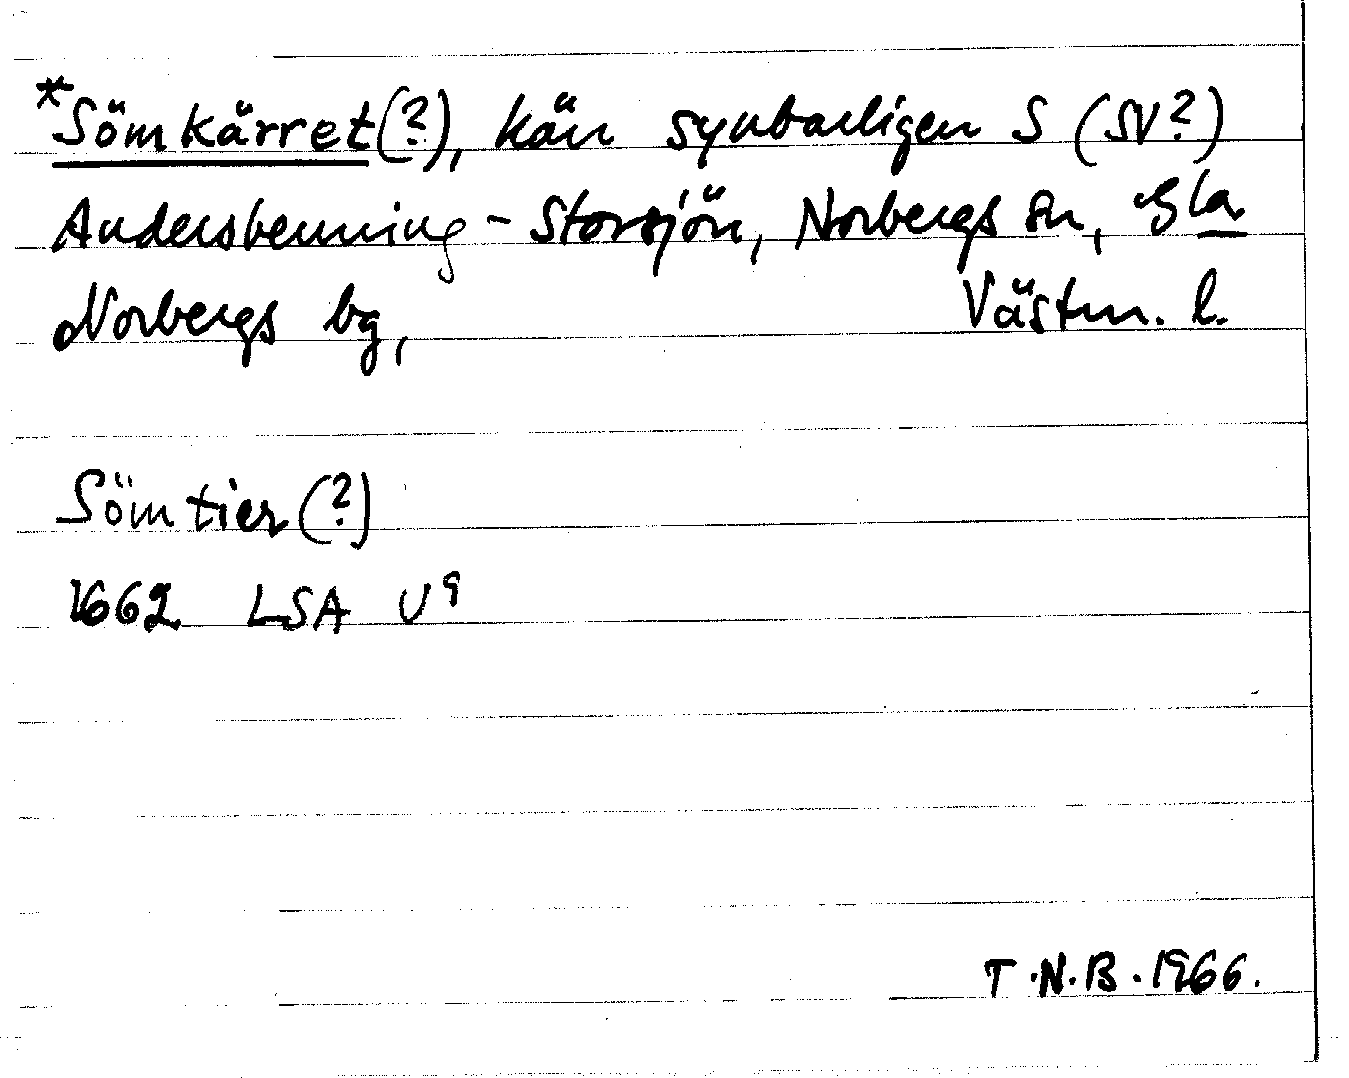 *Sömkärret(?), kärr synbarligen S (SV?)
Andersbenning-Storsjön, Norbergs sn, Gla
Norbergs bg, Västm. l.
Sömtier(?)
1662 LSA U9
T.N.B. 1966.